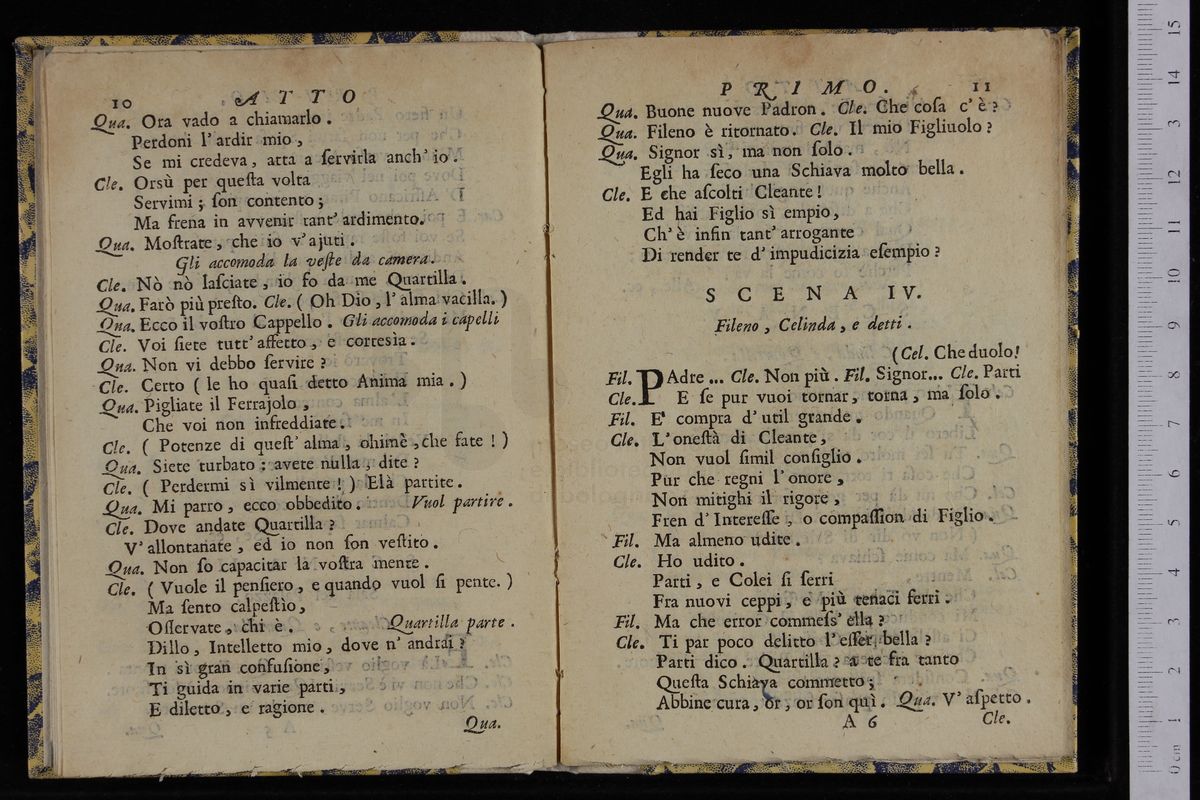 10 ATTO
Qua. Ora vado a chiamarlo.
Perdoni l'ardir mio,
Se mi credeva, atta a ſervirla anch'io.
Cle. Orsù per queſta volta
Servimi; ſon contento;
Ma frena in avvenir tant'ardimento.
Qua. Moſtrate, che io v'ajuti.
Gli accomoda la veſte da camera.
Cle. Nò nò laſciate, io fo da me Quartilla.
Qua. Farò più preſto. Cle. (Oh Dio, l'alma vacilla.)
Qua. Ecco il voſtro Cappello. Gli accomoda i capelli
Cle. Voi ſiete tutt'affetto, e cortesìa.
Qua. Non vi debbo ſervire?
Cle. Certo (le ho quaſi detto Anima mia.)
Qua. Pigliate il Ferrajolo,
Che voi non infreddiate.
Cle. (Potenze di queſt'alma, ohimè, che fate!)
Qua. Siete turbato: avete nulla, dite?
Cle. (Perdermi sì vilmente!) Elà partite.
Qua. Mi parro, ecco obbedito. Vuol partire.
Cle. Dove andate Quartilla?
V'allontanate, ed io non ſon veſtito.
Qua. Non ſo capacitar la voſtra mente.
Cle. (Vuole il penſiero, e quando vuol ſi pente.)
Ma ſento calpeſtìo,
Oſſervate, chi è. Quartilla parte.
Dillo, Intelletto mio, dove n'andrai?
In sì gran confuſione,
Ti guida in varie parti,
E diletto, e ragione.
Qua.
PRIMO. 11
Qua. Buone nuove Padron. Cle. Che coſa c'è?
Qua. Fileno è ritornato. Cle. Il mio Figliuolo?
Qua. Signor sì, ma non ſolo.
Egli ha ſeco una Schiava molto bella.
Cle. E che aſcolti Cleante!
Ed hai Figlio sì empio,
Ch'è infin tant'arrogante
Di render te d'impudicizia eſempio?
SCENA IV.
Fileno, Celinda, e detti.
(Cel. Che duolo!
Fil. PAdre... Cle. Non più. Fil. Signor... Cle. Parti
Cle. E ſe pur vuoi tornar, torna, ma ſolo.
Fil. E' compra d'util grande.
Cle. L'oneſtà di Cleante,
Non vuol ſimil conſiglio.
Pur che regni l'onore,
Non mitighi il rigore,
Fren d'Intereſſe, o compaſſion di Figlio.
Fil. Ma almeno udite.
Cle. Ho udito.
Parti, e Colei ſi ferri
Fra nuovi ceppi, e più tenaci ferri.
Fil. Ma che error commeſs'ella?
Cle. Ti par poco delitto l'eſſer bella?
Parti dico. Quartilla? a te fra tanto
Queſta Schiava commetto;
Abbine cura, or, or ſon quì. Qua. V'aſpetto.
A 6 Cle.